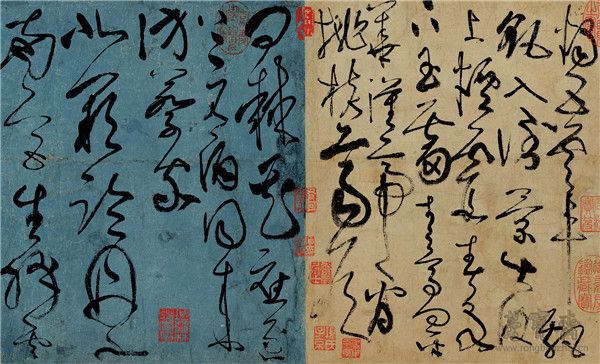 燭五雲車飄
飖入倒景出沒
上煙霞春泉
下玉霤青鳥向金
華漢帝看
桃核齊侯
問棘花應逐
上元酒同來
訪蔡家
北闕臨丹水
南宮生絳雲